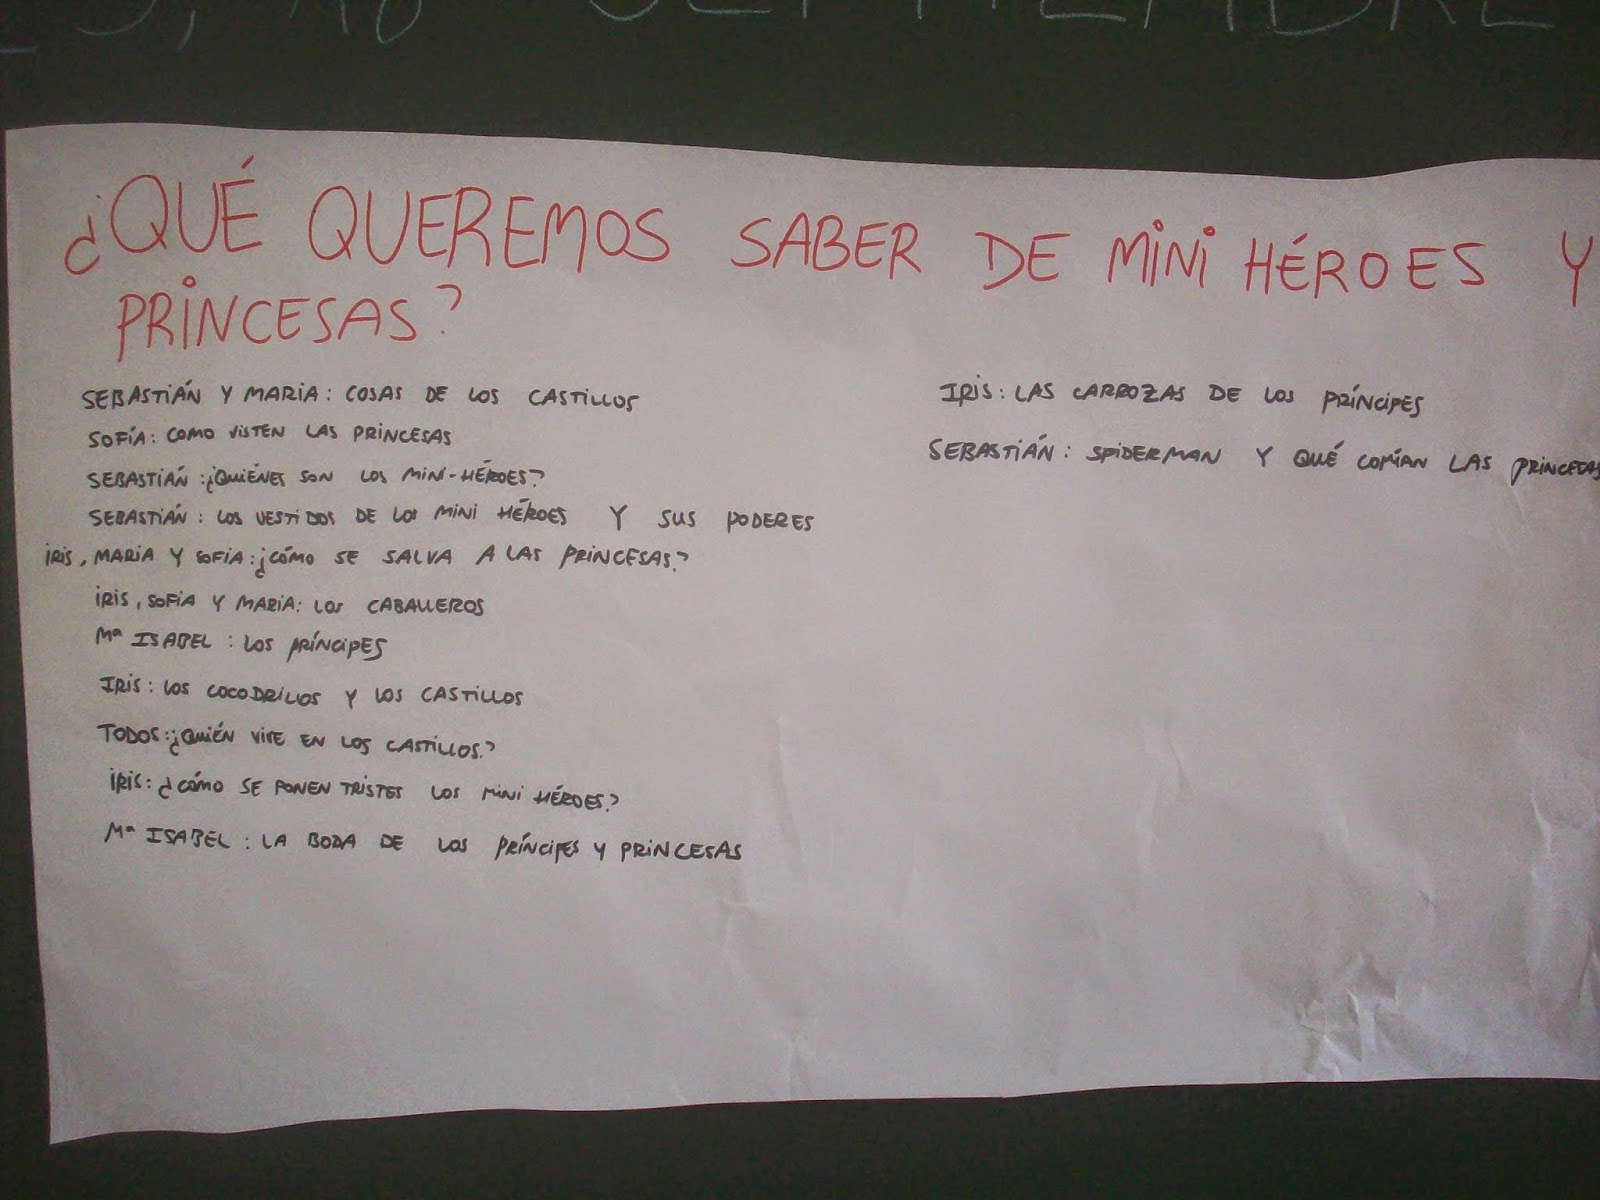 SEPTIEMBRE
¿QUÉ QUEREMOS SABER DE MINI HÉROES Y
PRINCESAS?
SEBASTIÁN Y MARIA: COSAS DE LOS CASTILLOS
SOFÍA: COMO VISTEN LAS PRINCESAS
SEBASTIÁN: ¿QUIÉNES SON LOS MINI-HÉROES?
SEBASTIÁN: LOS VESTIDOS DE LOS MINI HÉROES Y SUS PODERES
IRIS, MARIA Y SOFIA: ¿CÓMO SE SALVA A LAS PRINCESAS?
IRIS, SOFIA Y MARIA: LOS CABALLEROS
Mª ISABEL: LOS PRÍNCIPES
IRIS: LOS COCODRILOS Y LOS CASTILLOS
TODOS: ¿QUIÉN VIVE EN LOS CASTILLOS?
IRIS: ¿CÓMO SE PONEN TRISTES LOS MINI HÉROES?
Mª ISABEL: LA BODA DE LOS PRÍNCIPES Y PRINCESAS
IRIS: LAS CARROZAS DE LOS PRÍNCIPES
SEBASTIÁN: SPIDERMAN Y QUÉ COMÍAN LAS PRINCESAS